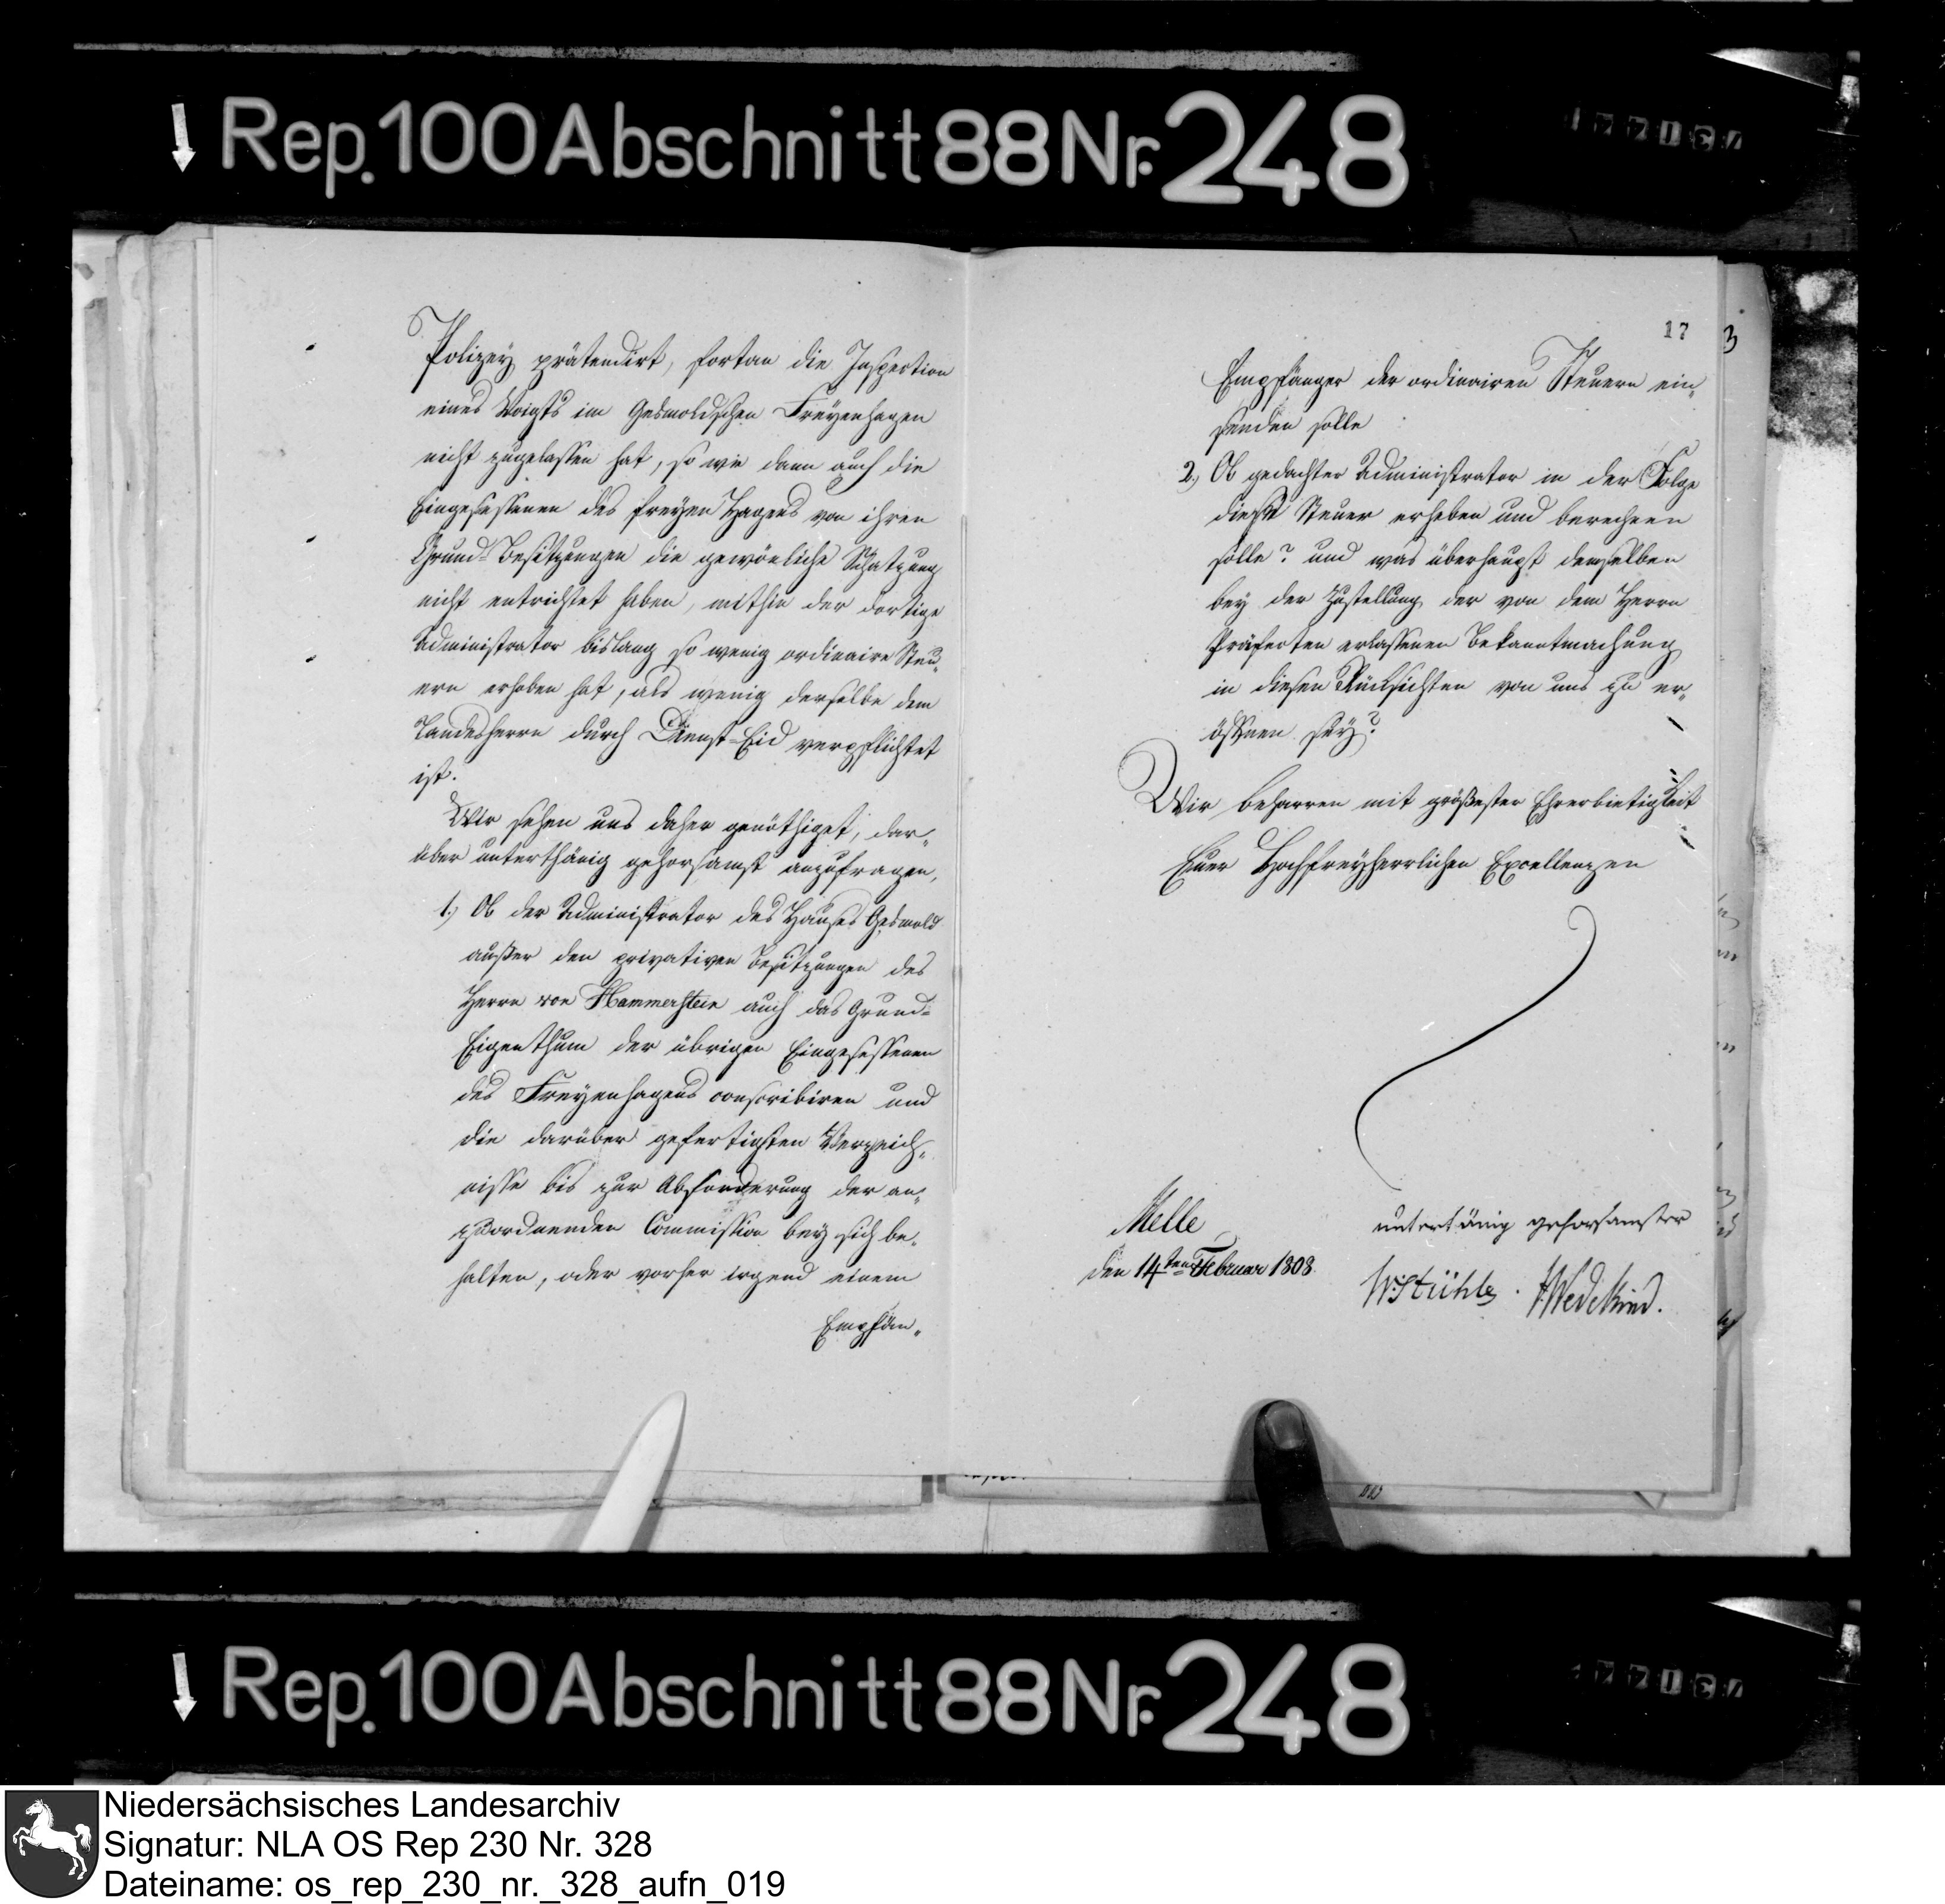 Rep. 100 Abschnitt 88 Nr. 248
Polizey prätendirt, fortan die Inspection
eines Voigts im Gesmoldschen Freyenhagen
nicht zugelassen hat, so wie dann auch die
Eingesessenen des freyen Hagens von ihren
Grund-Besitzungen die gewönliche Schatzung
nicht entrichtet haben, mithin der dortige
Administrator bislang so wenig ordinaire Steu-
ern erhoben hat, als wenig derselbe dem
Landesherrn durch Dienst-Eid verpflichtet
ist.
Wir sehen uns daher genöthiget, dar-
über unterthänig gehorsamst anzufragen,
1.) Ob der Administrator des Hauses Gesmold
außer den privativen Besitzungen des
Herrn von Hammerstein auch das Grund-
Eigenthum der übrigen Eingesessenen
des Freyenhagens conscribiren und
die darüber gefertigten Verzeich-
nisse bis zur Abforderung der an-
zuordnenden Commission bey sich be-
halten, oder vorher irgend einem
Empfän-
17
3
Empfänger der ordinairen Steuern ein-
senden solle
2.) Ob gedachter Administrator in der Folge
diese Steuer erheben und berechnen
solle? und was überhaupt demselben
bey der Zustellung der von dem Herrn
Präfecten erlassenen Bekanntmachung
in diesen Rücksichten von uns zu er-
öffnen sey?
Wir beharren mit größester Ehrerbietigkeit
Euer Hochfreyherrlichen Excellenzen
Melle
den 14ten Februar 1808.
untertänig gehorsamster
W. Stühle. Wedekind.
Rep. 100 Abschnitt 88 Nr. 248
Niedersächsisches Landesarchiv
Signatur: NLA OS Rep 230 Nr. 328
Dateiname: os_rep_230_nr._328_aufn_019